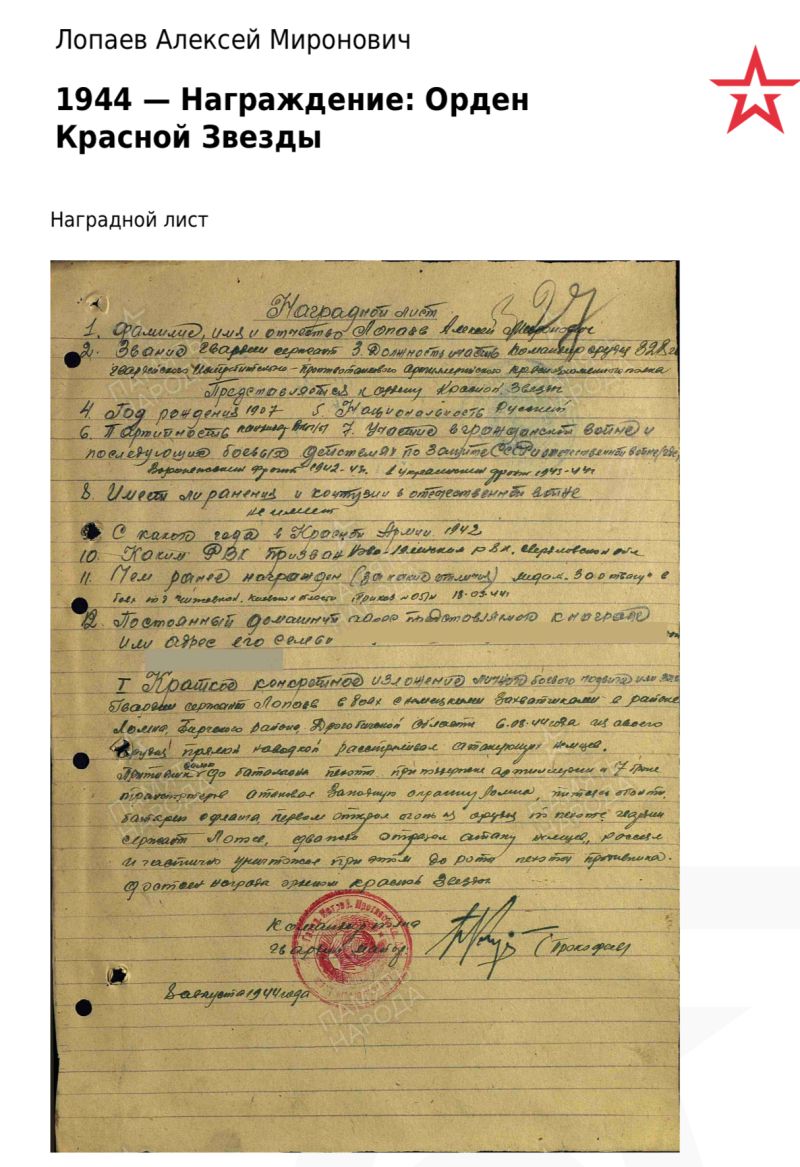 Лопаев Алексей Миронович
1944 — Награждение: Орден
Красной Звезды
Наградной лист
27
Наградной лист
1. Фамилие, имя и отчество Лопаев Алексей Миронович
2. Звание Гвардии сержант 3. Должность часть Командир орудия 328
гвардейского Истребительно-противотанкового артиллерийского краснознаменного полка
Представляется к ордену Красной Звезды
4. Год рождения 1907 5. Национальность Русский
6. Партийность 7. Участие в гражданской войне и
последующих боевых действиях по защите СССР и отечественной войне
Воронежский фронт 1942-43г. 1 украинский фронт 1943-44г
8. Имеет ли ранения и контузии в отечественной войне
не имеет
С какого года в Красной Армии. 1942
10. Каким РВК призван РВК, Свердловской обл
11. Чем ранее награжден (за какие отличия) медал. "За отвагу" в
Приказ № 05/н 18.03.44г
12. Постоянный домашний адрес представляемого к награде
или адрес его семьи
I Краткое конкретное изложение личного боевого подвига или
Гвардии сержант Лопаев в боях с немецкими захватчиками в районе
района, Дрогобичской области 6.08.44 года из своего
орудия прямой наводкой расстреливал атакующих немцев.
Противник более до батальона пехоты при поддержке артиллерии и 7 броне
транспортеров атаковал западную окраину пытаясь обойти
батарею с фланга, первым открыл огонь из орудия по пехоте гвардии
сержант Лопаев, дважды отразил атаку немцев, рассеял
и частично уничтожил при этом до роты пехоты противника.
Достоин награды орденом Красной Звезды
Командир полка
гвардии майор (Прокофьев)
8 августа 1944 года
ПАМЯТЬ
НАРОДА